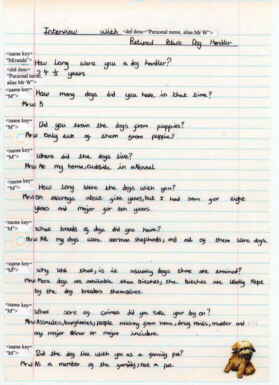 Interview with <del dem="Personal name, alias Mr W">
Retired Police Dog Handler
<name key=
"Miranda">
How long were you a dog handler?
<del dem=
"Personal name,
alias Mr W">
24 ½ years
<name key=
"M">
How many dogs did you have in that time?
Mr W 5
<name key=
"M">
Did you train the dogs from puppies?
Mr W Only out of them from puppies?
<name key=
"M">
Where did the dogs live?
Mr W At my home, outside in a kennel
<name key=
"M">
How long were the dogs with you?
Mr W On average about five years, but I had some for eight
years and major for ten years.
<name key=
"M">
What breeds of dogs did you have?
Mr W All my dogs were German shepherds, and all of them were dogs.
<name key=
"M">
Why was that, is it usually dogs that are trained?
Mr W More dogs are available than bitches, the bitches are usually kept
by the dog breeders themselves.
<name key=
"M">
What sort of crimes did you take your dog on?
Mr W Assaults, burglaries, people missing from home, drug raids, murder and
any major minor or major incidents.
<name key=
"M">
Did the dog live with you as a family pet?
Mr W As a member of the family, not a pet.